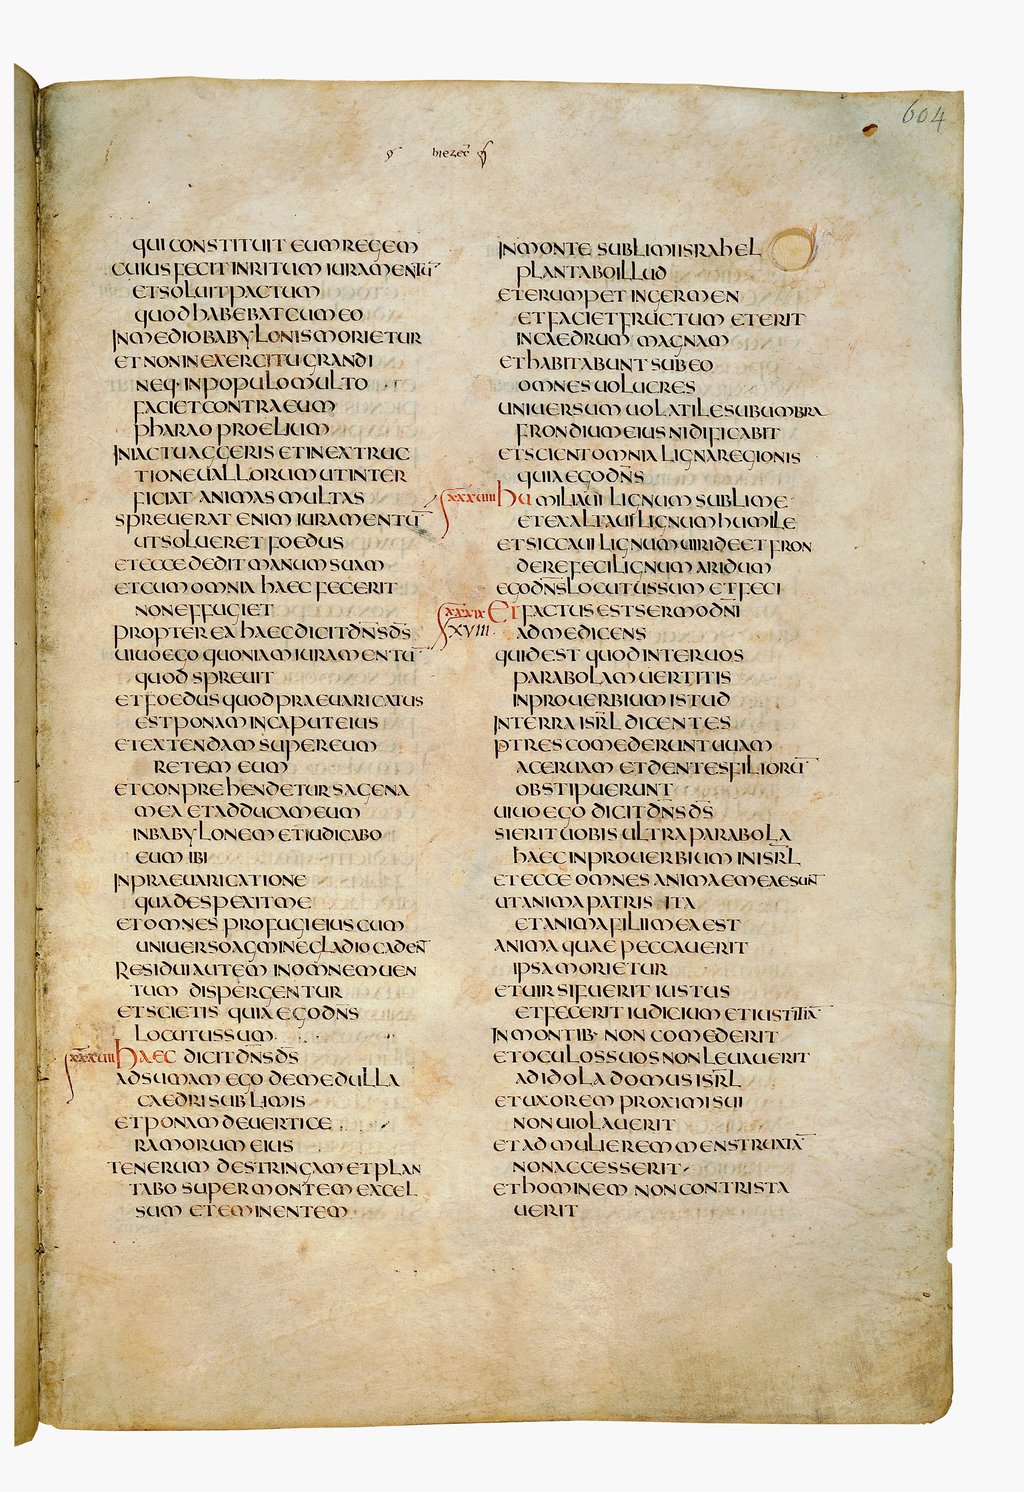 604
hiezec̄
QUI CONSTITUIT EUM REGEM
CUIUS FECIT INRITUM IURAMENTŪ
ET SOLUIT PACTUM
QUOD HABEBAT CUM EO
IN MEDIO BABYLONIS MORIETUR
ET NON IN EXERCITU GRANDI
NEQ· IN POPULO MULTO
FACIET CONTRA EUM
PHARAO PROELIUM
IN IACTU AGGERIS ET IN EXTRUC
TIONE UALLORUM UT INTER
FICIAT ANIMAS MULTAS
SPREUERAT ENIM IURAMENTŪ
UT SOLUERET FOEDUS
ET ECCE DEDIT MANUM SUAM
ET CUM OMNIA HAEC FECERIT
NON EFFUGIET
PROPTEREA HAEC DICIT DN̄S D̄S
UIUO EGO QUONIAM IURAMENTŪ
QUOD SPREUIT
ET FOEDUS QUOD PRAEUARICATUS
EST PONAM IN CAPUT EIUS
ET EXTENDAM SUPER EUM
RETEM EUM
ET CONPREHENDETUR SAGENA
MEA ET ADDUCAM EUM
IN BABYLONEM ET IUDICABO
EUM IBI
IN PRAEUARICATIONE
QUA DESPEXIT ME
ET OMNES PROFUGI EIUS CUM
UNIUERSO AGMINE GLADIO CADEN̄T
RESIDUI AUTEM IN OMNEM UEN
TUM DISPERGENTUR
ET SCIETIS QUIA EGO DN̄S
LOCUTUS SUM
XXXVIII HAEC DICIT DN̄S D̄S
ADSUMAM EGO DE MEDULLA
CAEDRI SUBLIMIS
ET PONAM DE UERTICE
RAMORUM EIUS
TENERUM DESTRINGAM ET PLAN
TABO SUPER MONTEM EXCEL
SUM ET EMINENTEM
IN MONTE SUBLIMI ISRAHEL
PLANTABO ILLUD
ET ERUMPET IN GERMEN
ET FACIET FRUCTUM ET ERIT
IN CAEDRUM MAGNAM
ET HABITABUNT SUB EO
OMNES UOLUCRES
UNIUERSUM UOLATILE SUB UMBRA
FRONDIUM EIUS NIDIFICABIT
ET SCIENT OMNIA LIGNA REGIONIS
QUIA EGO DN̄S
HUMILIAUI LIGNUM SUBLIME
ET EXALTAUI LIGNUM HUMILE
ET SICCAUI LIGNUM UIRIDE ET FRON
DERE FECI LIGNUM ARIDUM
EGO DN̄S LOCUTUS SUM ET FECI
XXXIX ET FACTUS EST SERMO DN̄I
XVIII· AD ME DICENS
QUID EST QUOD INTER UOS
PARABOLAM UERTITIS
IN PROUERBIUM ISTUD
IN TERRA ISR̄L DICENTES
PTRES COMEDERUNT UUAM
ACERUAM ET DENTES FILIORŪ
OBSTIPUERUNT
UIUO EGO DICIT DN̄S D̄S
SI ERIT UOBIS ULTRA PARABOLA
HAEC IN PROUERBIUM IN ISR̄L
ET ECCE OMNES ANIMAE MEAE SUN̄T
UT ANIMA PATRIS ITA
ET ANIMA FILII MEA EST
ANIMA QUAE PECCAUERIT
IPSA MORIETUR
ET UIR SI FUERIT IUSTUS
ET FECERIT IUDICIUM ET IUSTITIĀ
IN MONTIB· NON COMEDERIT
ET OCULOS SUOS NON LEUAUERIT
AD IDOLA DOMUS ISR̄L
ET UXOREM PROXIMI SUI
NON UIOLAUERIT
ET AD MULIEREM MENSTRUATĀ
NON ACCESSERIT
ET HOMINEM NON CONTRISTA
UERIT